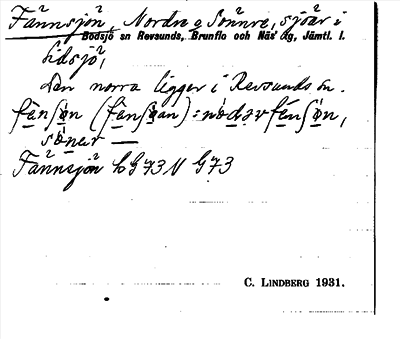 Fännsjön, Nordra o Sönnre, sjöar i
Bodsjö sn Revsunds, Brunflo och Näs' dg, Jämtl. l.
Sidsjö,
den norra ligger i Revsunds sn.
fènʃøn (fènʃøan) : nòdərfénʃøn,
sönər —
Fännsjön bG73N G73
C. LINDBERG 1931.